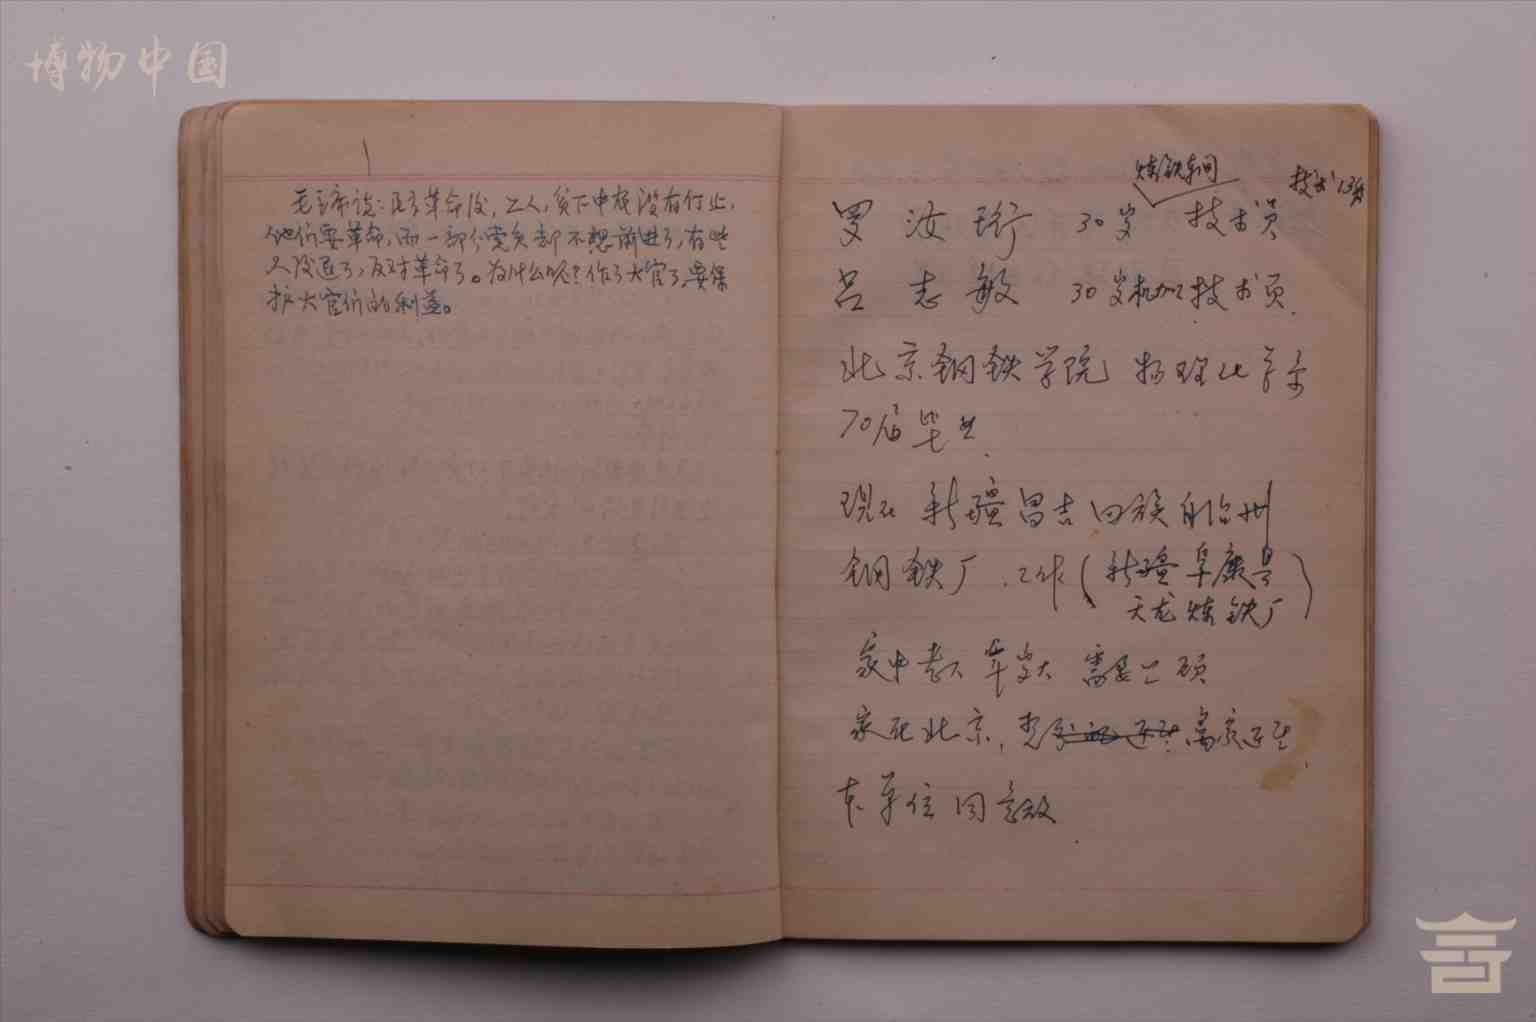 博物中国
毛主席说：民主革命后，工人，贫下中农没有停止，
他们要革命，而一部分党员却不想前进了，有些
人后退了，反对革命了。为什么呢？作了大官了，要保
护大官们的利益。
炼铁车间
技术13级
罗汝珩 30岁 技术员
吕志敏 30岁 机加技术员
北京钢铁学院 物理化学系
70届毕业
现在新疆昌吉回族自治州
钢铁厂工作（新疆阜康县
天龙炼铁厂）
家中老人年岁大 需要照顾
家在北京，离家远
本单位同意放